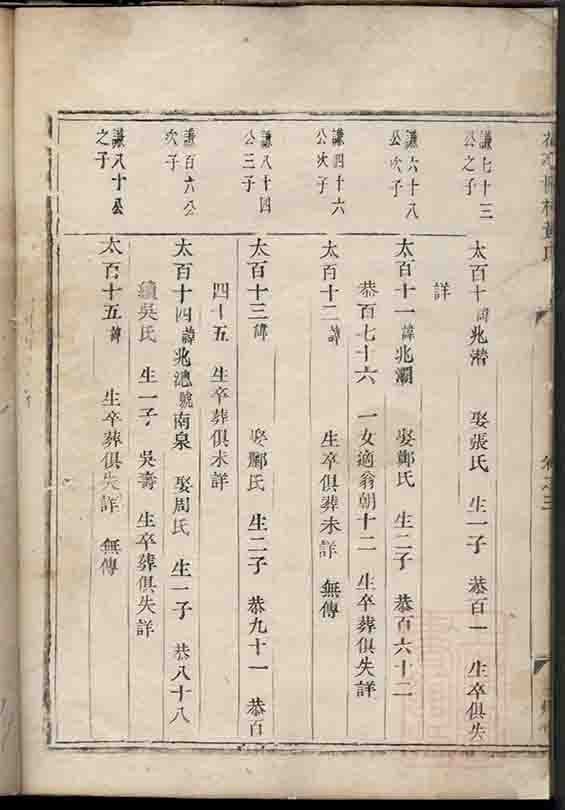 謙七十三
公之子
太百十諱兆潛 娶張氏 生一子 恭百一 生卒俱失
詳
謙六十八
公次子
太百十一諱兆瀾 娶鄭氏 生二子 恭百六十二
恭百七十六 一女適翁朝十二 生卒葬俱失詳
謙四十六
公次子
太百十二諱 生卒俱葬未詳 無傳
謙八十四
公三子
太百十三諱 娶鄺氏 生二子 恭九十一 恭百
四十五 生卒葬俱未詳
謙百六公
次子
太百十四諱兆漗號南泉 娶周氏 生一子 恭八十八
續吳氏 生一子 吳壽 生卒葬俱失詳
謙八十公
之子
太百十五諱 生卒葬俱失詳 無傳